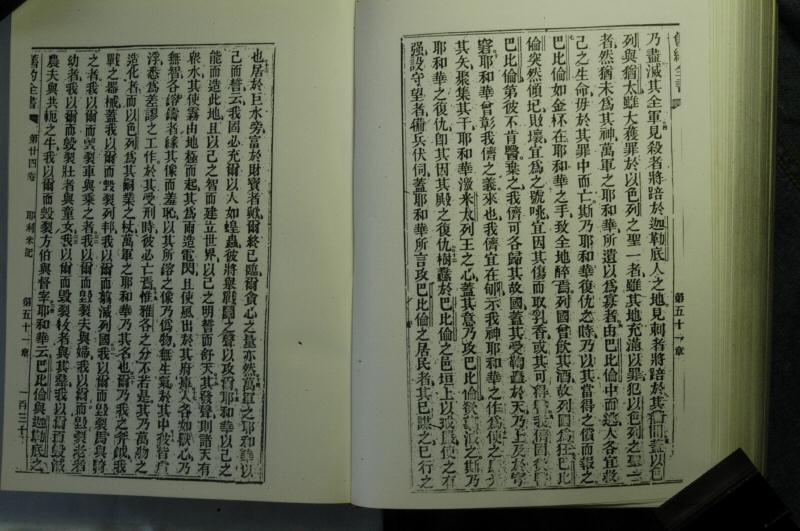 舊約全書
第五十一章
乃盡滅其全軍見殺者將踣於迦勒底人之地見刺者將踣於其衢間蓋以色
列與猶太雖大獲罪於以色列之聖一者雖其地充滿以罪犯以色列之聖一
者然猶未為其神萬軍之耶和華所遺以為寡者由巴比倫中而逃人各宜救
己之生命毋於其罪中而亡斯乃耶和華復仇之時乃以其當得之償而報之
巴比倫如金杯在耶和華之手致全地醉焉列國曾飲其酒故列國為狂巴比
倫突然傾圮敗壞宜為之號咷宜因其傷而取乳香或其可得愈我儕固
巴比倫第彼不肯醫棄之我儕可各歸其故國蓋其受鞫疊於天乃上及於穹
窿耶和華曾彰我儕之義來也我儕宜在郇示我神耶和華之作為使之
其矢聚集其干耶和華激米太列王之心蓋其意乃攻巴比倫欲毀滅之斯乃
耶和華之復仇即其因其殿之復仇樹纛於巴比倫之邑垣上以戒嚴使之有
强設守望者備兵伏伺蓋耶和華所言攻巴比倫之居民者其已謀之已行之
也居於巨水旁富於財寶者歟爾終已臨爾貪心之量亦然萬軍之耶和華以
己而誓云我固必充爾以人如蝗蟲彼將舉戰鬭之聲以攻爾耶和華以己之
能而造此地且以己之智而建立世界以己之明哲而舒天其發聲則諸天有
衆水其使霧由地極而起其為雨造電閃且使風出於其府庫人各如獸心乃
無智各鎔鑄者緣其像而羞恥以其所鎔之像乃偽物無生氣於其中
浮悉為差謬之工作於其受刑時彼必亡焉惟雅各之分不若是其乃萬物之
造化者而以色列為其嗣業之杖萬軍之耶和華乃其名也爾乃我之斧鉞我
戰之器械蓋我以爾而毀裂列邦我以爾而翦滅列國我以爾而毀裂馬與騎
之者我以爾而毀裂車與乘之者我以爾而毀裂夫與婦我以爾而毀裂老者
幼者我以爾而毀裂壯者與童女我以爾而毀裂牧者與其羣我以爾而毀裂
農夫與共軛之牛我以爾而毀裂方伯與督宰耶和華云巴比倫與迦勒底之
舊約全書
第廿四卷
耶利米記
第五十一章
一百三十